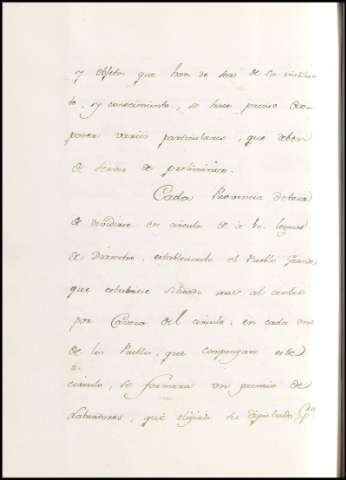 y efectos que han de ser de su instituto
to, y conocimiento, se hace preciso exponer
poner varios particulares, que deben
de servir de preliminar.
Cada Provincia debera
de dividirse en circulo de a leguas
de Diametro, estableciendo el Pueblo Grande
que estubiere situado mas al centro
por Caveza del circulo; en cada uno
de los Pueblos, que compongan este
circulo, se formara un gremio de
Labradores, que elijirán su diputado, pa